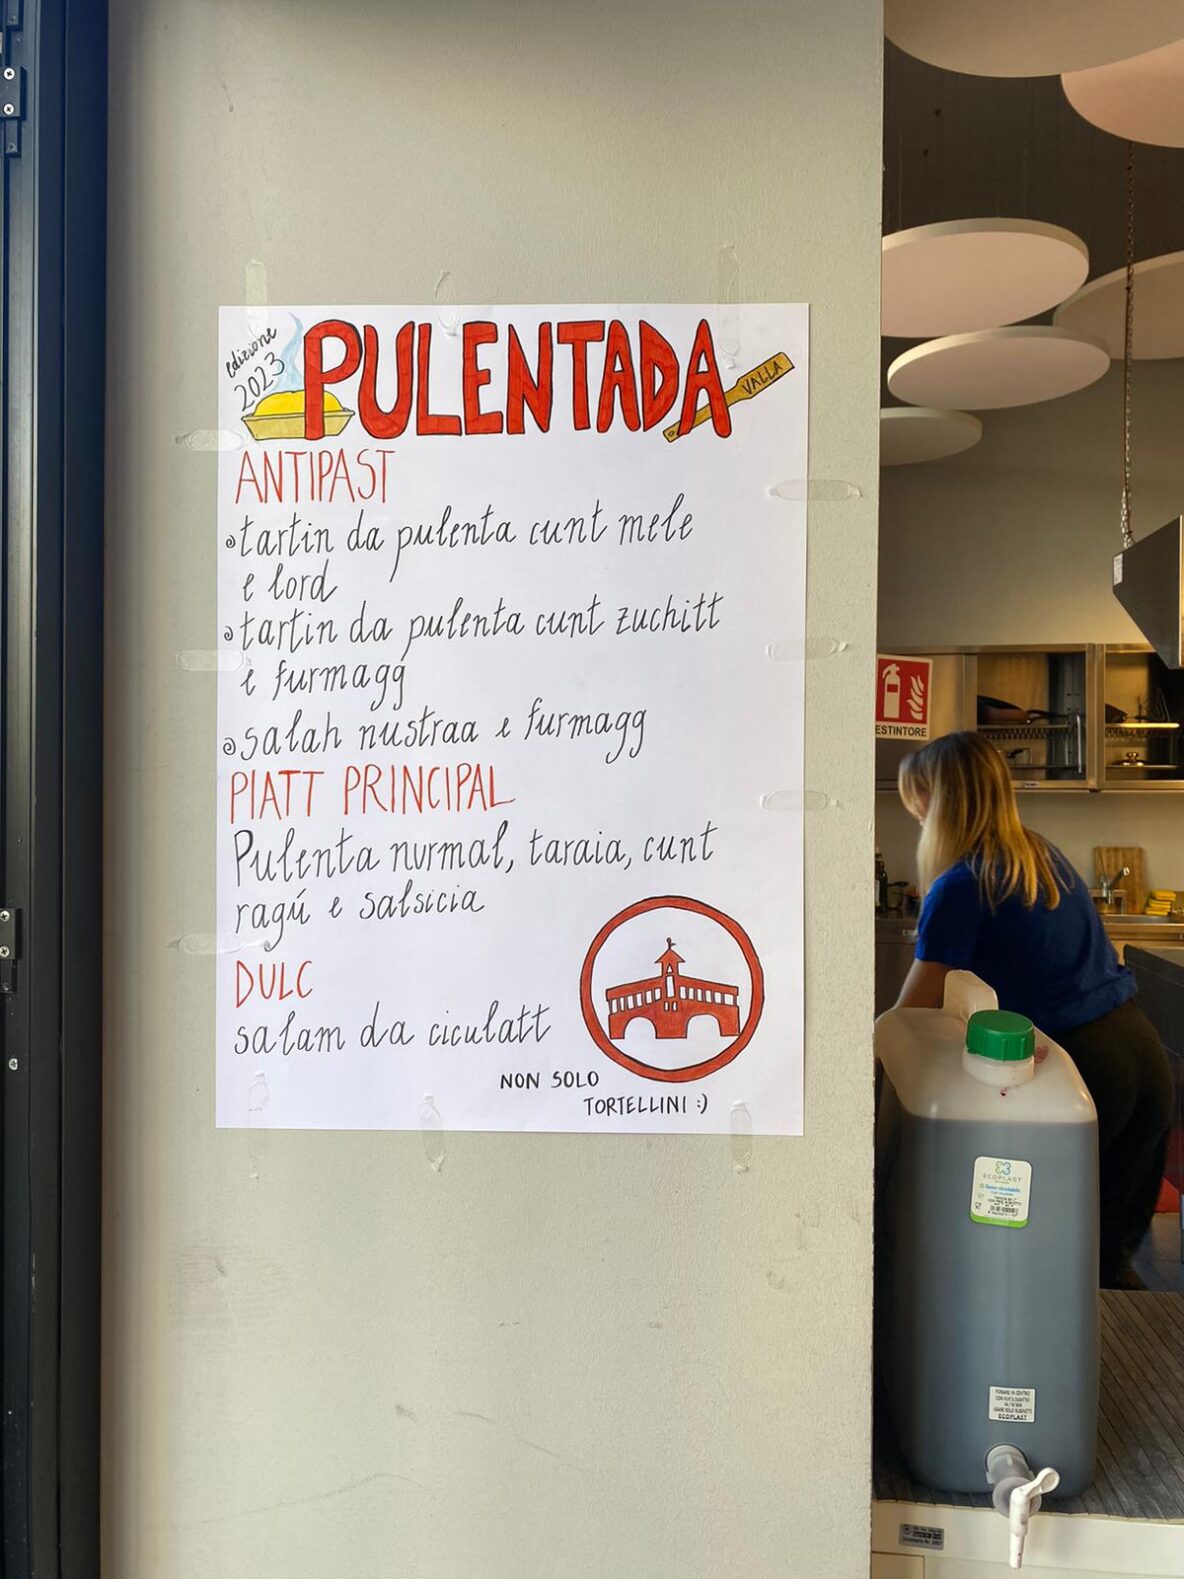 edizione
2023
PULENTADA
VALLA
ANTIPAST
tartin da pulenta cunt mele
e lord
tartin da pulenta cunt zuchitt
e furmagg
salah nustraa e furmagg
PIATT PRINCIPAL
Pulenta nurmal, taraia, cunt
ragú e salsicia
DULC
salam da ciculatt
NON SOLO
TORTELLINI :)
ESTINTORE
ECOPLAST
ECOPLAST